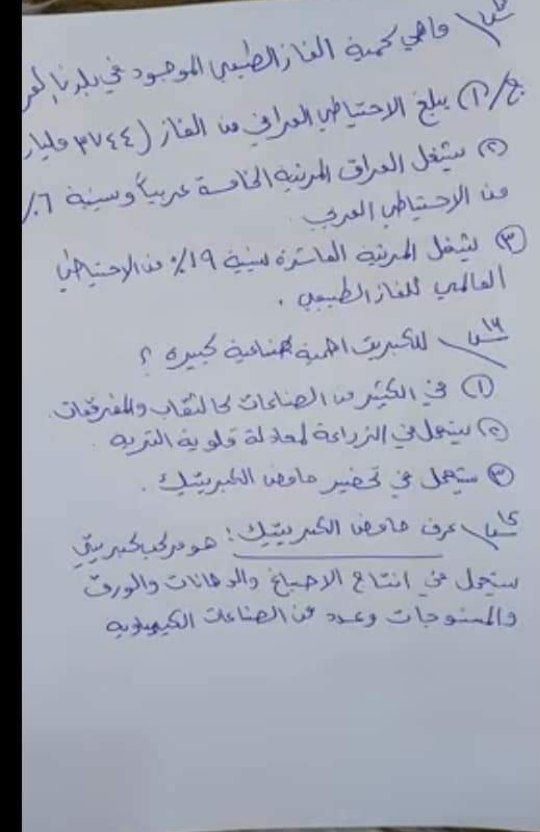 س/ ماهي كمية الغاز الطبيعي الموجود في بلدنا العر
ج/ ① يبلغ الاحتياطي العراقي من الغاز (٣٧٤٤ مليار
② يشغل العراق المرتبة الخامسة عربياً وبنسبة ٦٪
من الاحتياطي العربي
③ يشغل المرتبة العاشرة بنسبة ١٩٪ من الاحتياطي
العالمي للغاز الطبيعي .
س١٦/ للكبريت اهمية صناعية كبيرة ؟
① في الكثير من الصناعات كالثقاب والمفرقعات
② يستعمل في الزراعة لمعادلة قلوية التربة .
③ يستعمل في تحضير حامض الكبريتيك .
س/ عرف حامض الكبريتيك : هو مركب كبريتي
يستعمل في انتاج الاصباغ والدهانات والورق
والمنسوجات وعدد من الصناعات الكيمياوية